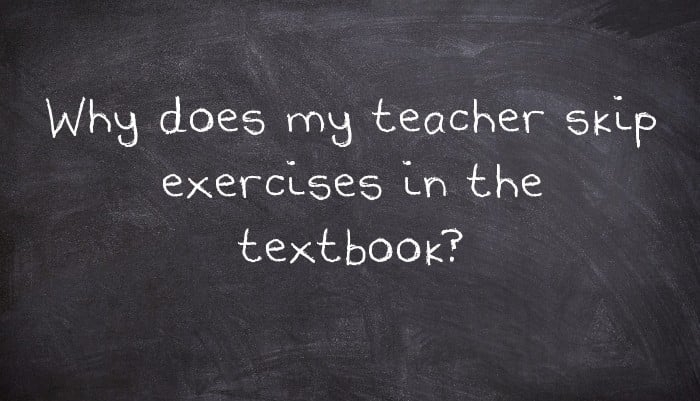 Why does my teacher skip
exercises in the
textbook?